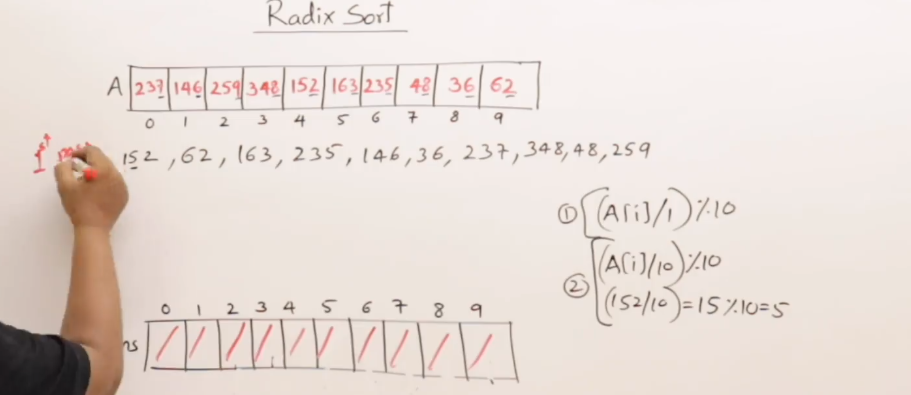 Radix Sort
A 237 146 259 348 152 163 235 48 36 62
0 1 2 3 4 5 6 7 8 9
1st
152, 62, 163, 235, 146, 36, 237, 348, 48, 259
① (A[i]/1)%10
② (A[i]/10)%10
(152/10)=15%10=5
0 1 2 3 4 5 6 7 8 9
ns